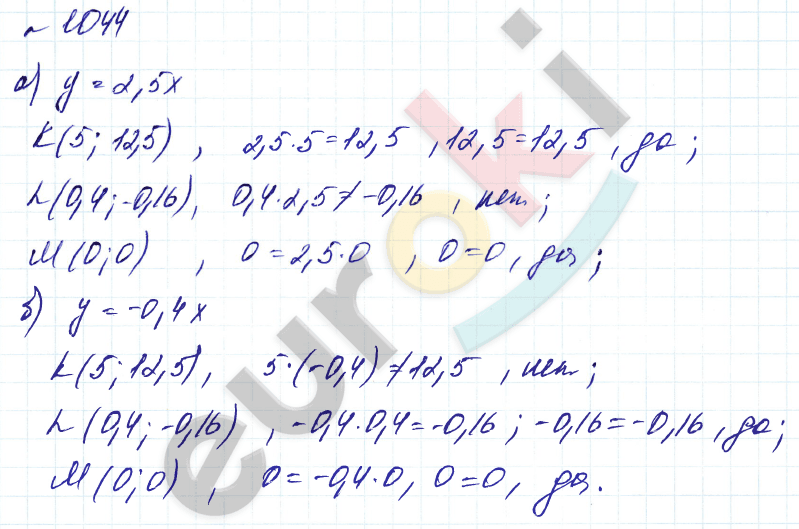 № 1044
а) y = 2,5x
K(5; 12,5) , 2,5·5=12,5 , 12,5=12,5 , да ;
L(0,4; -0,16), 0,4·2,5≠-0,16 , нет ;
M(0;0) , 0=2,5·0 , 0=0, да ;
б) y = -0,4x
K(5; 12,5), 5·(-0,4)≠12,5 , нет ;
L(0,4; -0,16) , -0,4·0,4=-0,16 ; -0,16=-0,16 , да ;
M(0;0) , 0=-0,4·0, 0=0, да.
euroki